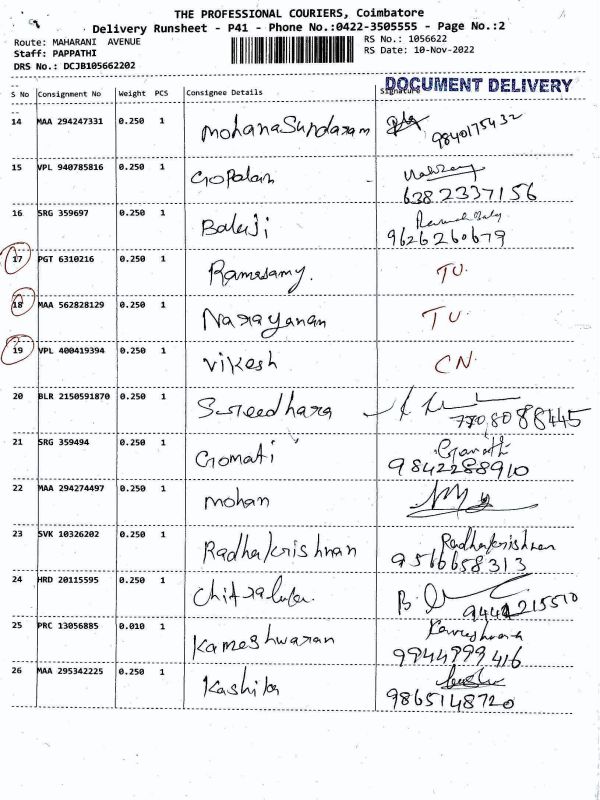 THE PROFESSIONAL COURIERS, Coimbatore
Delivery Runsheet - P41 - Phone No.:0422-3505555 - Page No.:2
Route: MAHARANI AVENUE
RS No.: 1056622
Staff: PAPPATHI
RS Date: 10-Nov-2022
DRS No.: DCJB105662202
DOCUMENT DELIVERY
S No Consignment No Weight PCS Consignee Details Signature
14 MAA 294247331 0.250 1 MohanaSundaram 9840175432
15 VPL 940785816 0.250 1 Gopalan 6382337156
16 SRG 359697 0.250 1 Balaji 9626260679
17 PGT 6310216 0.250 1 Ramasamy. TU.
18 MAA 562828129 0.250 1 Narayanan TU.
19 VPL 400419394 0.250 1 Vikesh CN.
20 BLR 2150591870 0.250 1 Sureedhara 7708088445
21 SRG 359494 0.250 1 Gomati 9842288910
22 MAA 294274497 0.250 1 mohan
23 SVK 10326202 0.250 1 Radhakrishnan Radhakrishnan
9566658313
24 HRD 20115595 0.250 1 9442215510
25 PRC 13056885 0.010 1 Kameshwaran 9944999416
26 MAA 295342225 0.250 1 Kashika 9865148720